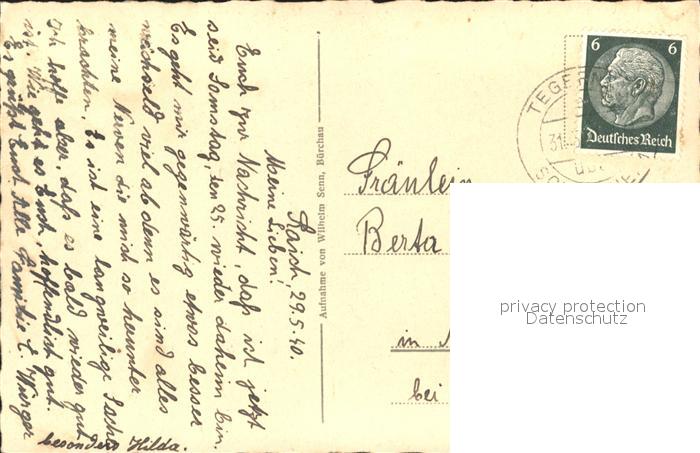 Raich, 29.5.40.
Meine Lieben!
Euch zur Nachricht, daß ich jetzt
seid Samstag, den 25. wieder daheim bin.
Es geht mir gegenwärtig etwas besser
wechseld viel ab denn es sind alles
meine Nerven die mich so herunter
brachten. Es ist eine langweilige Sache
Ich hoffe aber, daß es bald wieder gut
ist. Wie geht es Euch, hoffendlich gut.
Es grüßt Euch Alle Familie E.
besonders Hilda.
Aufnahme von Wilhelm Senn, Bürchau
6 6
Deutsches Reich
TEGERN
31.5
über
Fräulein
Berta
in
bei
privacy protection
Datenschutz